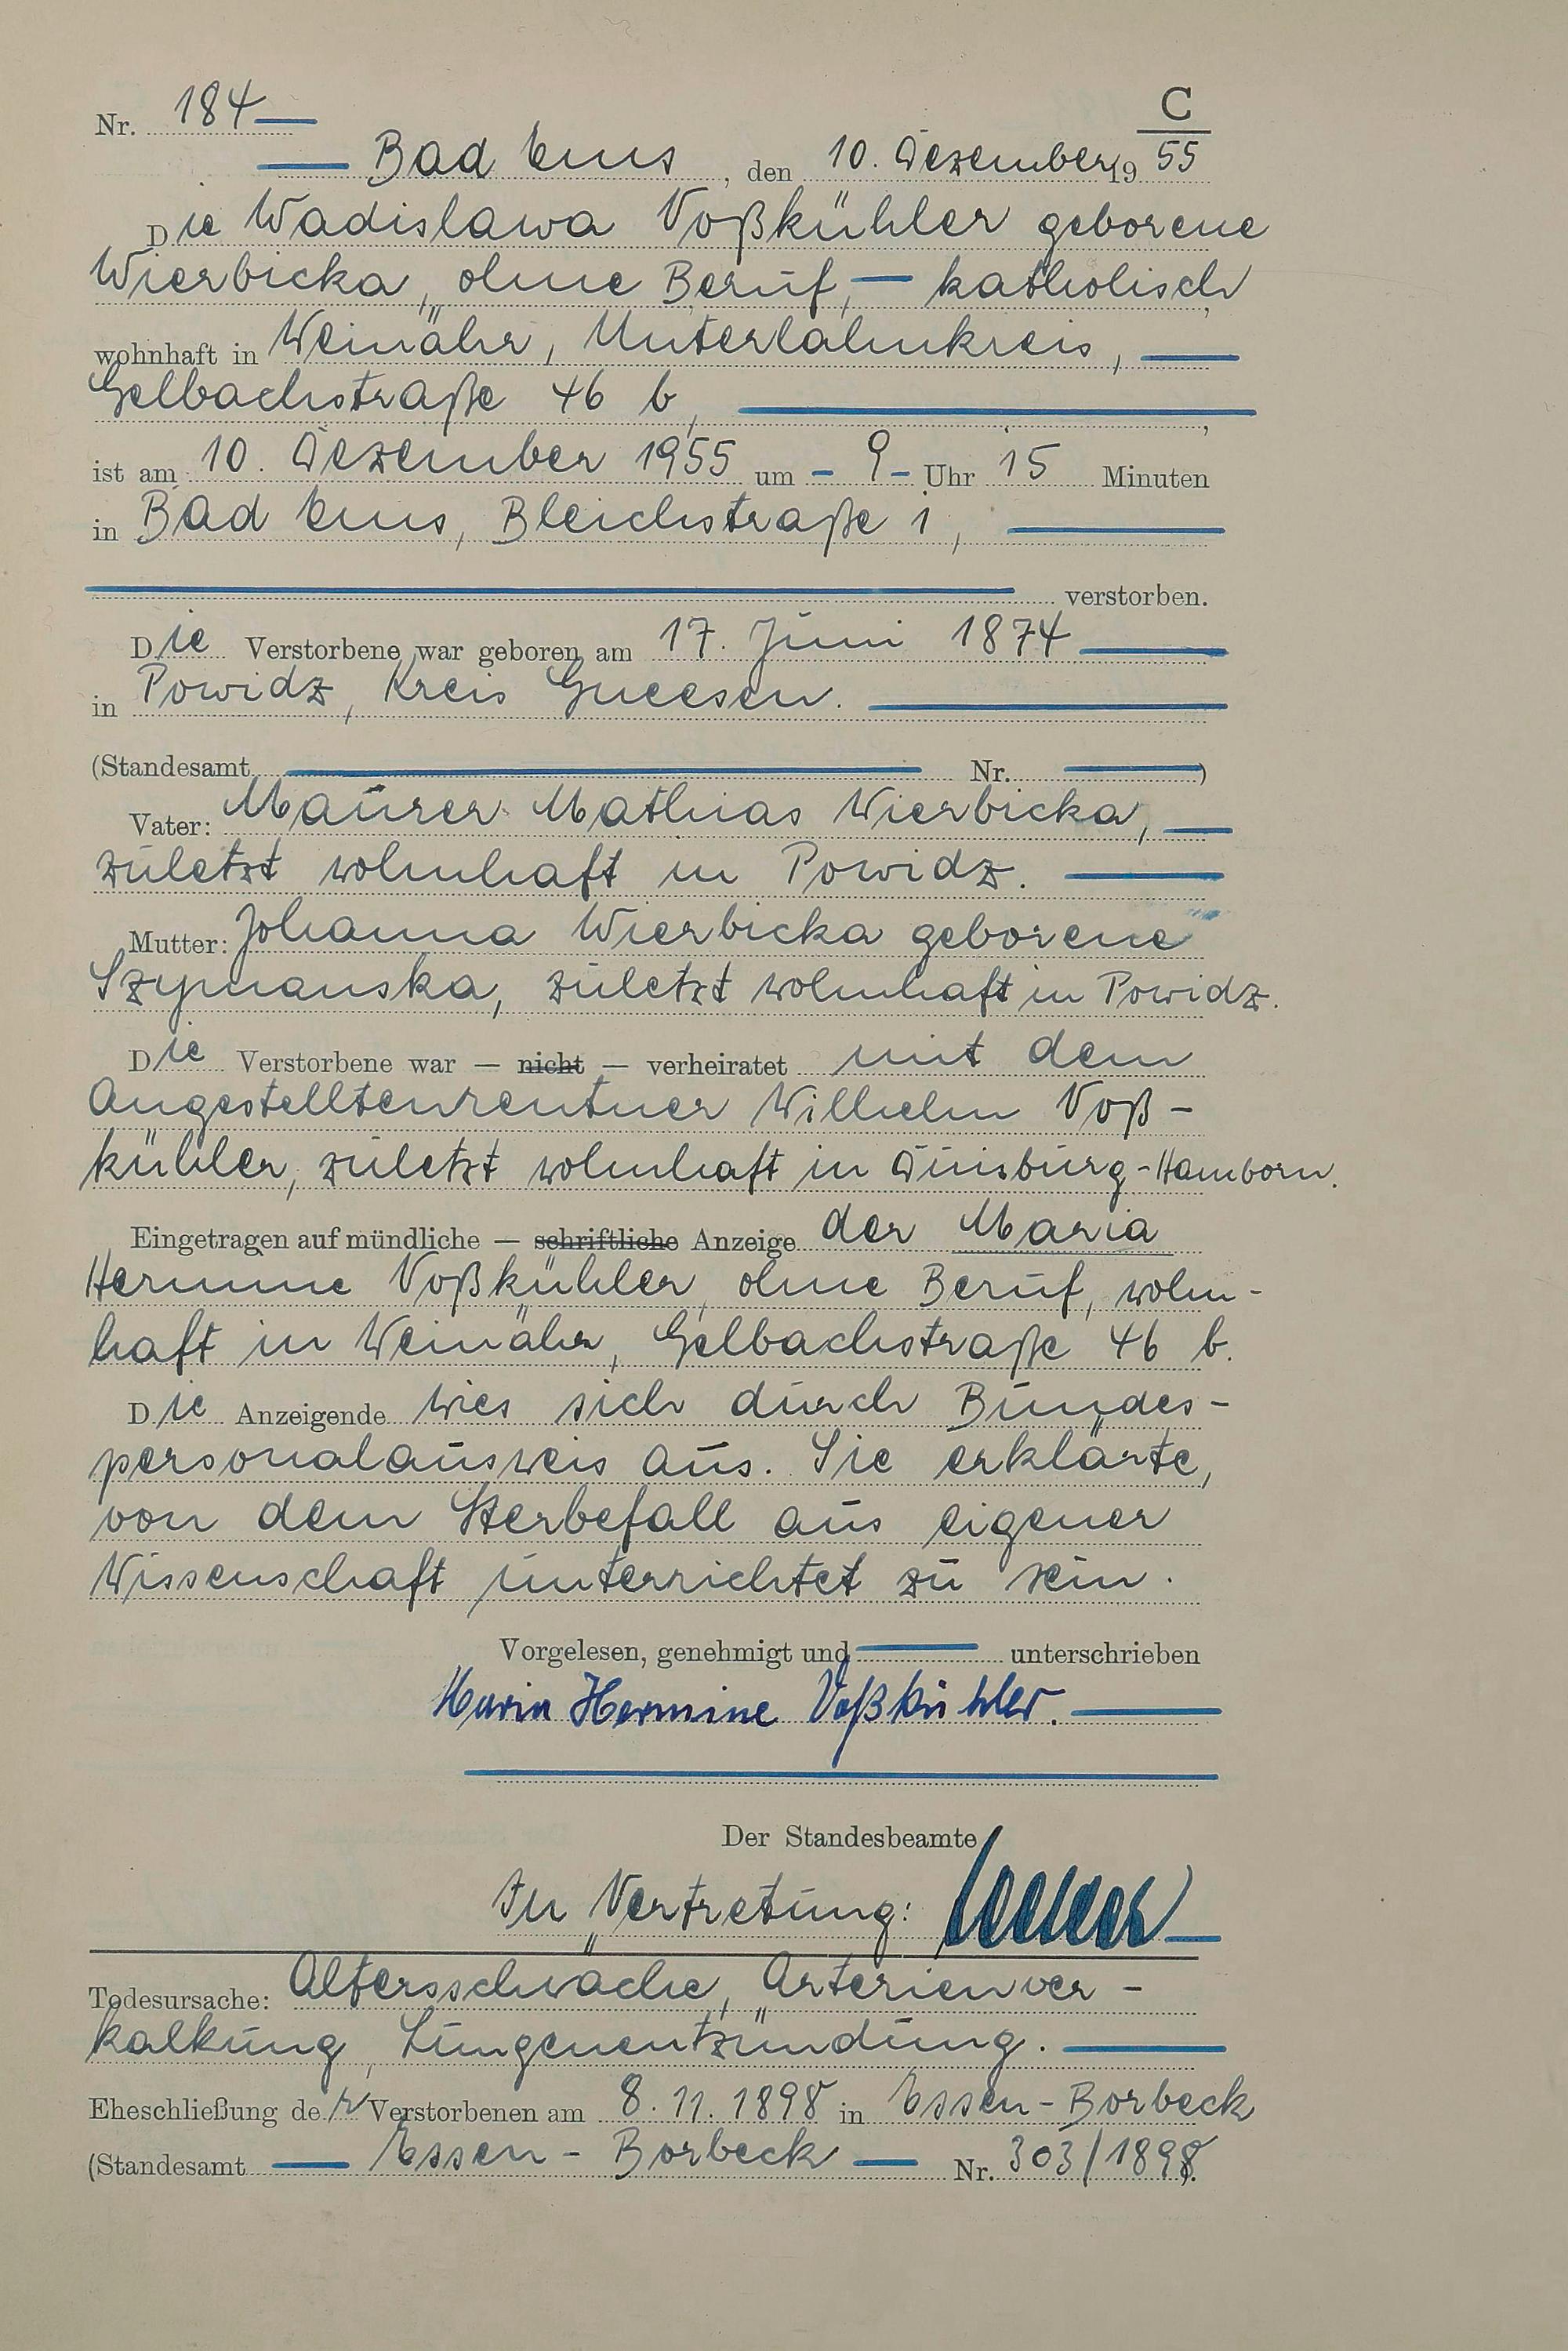 C
Nr. 184
Bad Ems, den 10. Dezember 1955
Die Wadislawa Voßkühler geborene
Wierbicka, ohne Beruf, – katholisch,
wohnhaft in Weinähr, Unterlahnkreis,
Gelbachstraße 46 b,
ist am 10. Dezember 1955 um - 9 - Uhr 15 Minuten
in Bad Ems, Bleichstraße 1,
verstorben.
Die Verstorbene war geboren am 17. Juni 1874
in Powidz, Kreis Gneesen.
(Standesamt Nr. )
Vater: Maurer Mathias Wierbicka,
zuletzt wohnhaft in Powidz.
Mutter: Johanna Wierbicka geborene
Szymanska, zuletzt wohnhaft in Powidz.
Die Verstorbene war — nicht — verheiratet mit dem
Angestelltenrentner Wilhelm Voß-
kühler, zuletzt wohnhaft in Duisburg-Hamborn.
Eingetragen auf mündliche — schriftliche Anzeige der Maria
Hermine Voßkühler, ohne Beruf, wohn-
haft in Weinähr, Gelbachstraße 46 b.
Die Anzeigende wies sich durch Bundes-
personalausweis aus. Sie erklärte,
von dem Sterbefall aus eigener
Wissenschaft unterrichtet zu sein.
Vorgelesen, genehmigt und unterschrieben
Maria Hermine Voßkühler.
Der Standesbeamte
In Vertretung:
Todesursache: Altersschwäche, Arterienver-
kalkung, Lungenentzündung.
Eheschließung der Verstorbenen am 8.11.1898 in Essen-Borbeck
(Standesamt Essen - Borbeck Nr. 303/1898.)